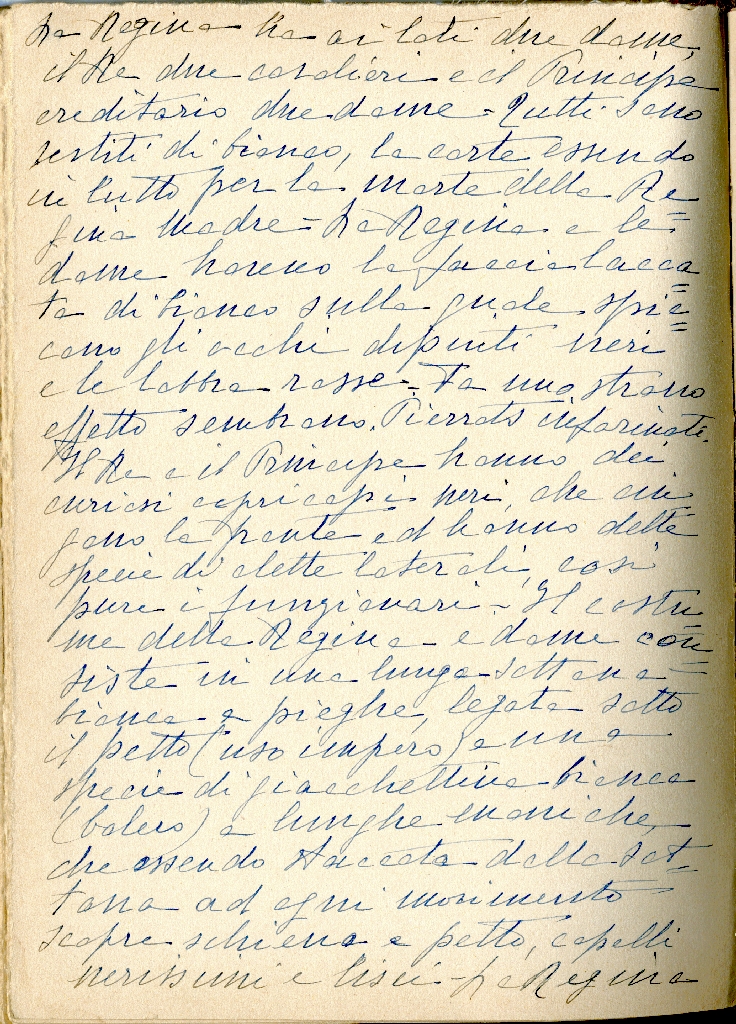 La Regina ha ai lati due dame,
il Re due cavalieri e il Principe
ereditario due dame - Tutti sono
vestiti di bianco, la corte essendo
in lutto per la morte della Re=
gina Madre - La Regina e le
dame hanno la faccia lacca=
ta di bianco sulla quale spic=
cano gli occhi dipinti neri
e le labbra rosse - Fa uno strano
effetto sembrano Pierrots infarinati.
Il Re e il Principe hanno dei
curiosi copricapi neri, che cin
gono la fronte ed hanno delle
specie di alette laterali, così
pure i funzionari - Il costu=
me della Regina e dame con=
siste in una lunga sottana
bianca a pieghe, legata sotto
il petto (uso impero) e una
specie di giacchettina bianca
(bolero) a lunghe maniche,
che essendo staccata dalla sot=
tana ad ogni movimento
scopre schiena e petto, capelli
nerissimi e lisci - La Regina